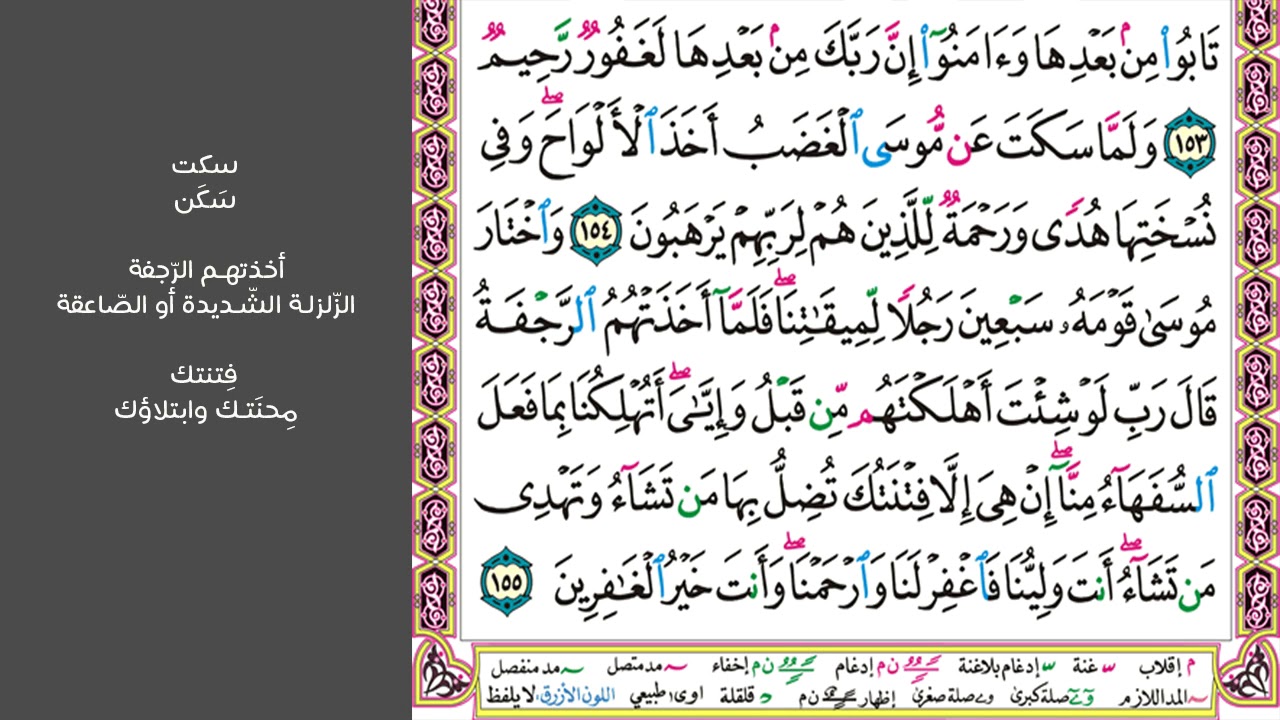 سكت
سَكَن
أخذتهـم الرّجفة
الزّلزلـة الشّـديدة أو الصّاعقة
فِتنتك
مِحنَتـك وابتلاؤك
تَابُوا۟ مِنۢ بَعْدِهَا وَءَامَنُوٓا۟ إِنَّ رَبَّكَ مِنۢ بَعْدِهَا لَغَفُورٌ رَّحِيمٌ
١٥٣ وَلَمَّا سَكَتَ عَن مُّوسَى ٱلْغَضَبُ أَخَذَ ٱلْأَلْوَاحَ ۖ وَفِى
نُسْخَتِهَا هُدًى وَرَحْمَةٌ لِّلَّذِينَ هُمْ لِرَبِّهِمْ يَرْهَبُونَ ١٥٤ وَٱخْتَارَ
مُوسَىٰ قَوْمَهُۥ سَبْعِينَ رَجُلًا لِّمِيقَٰتِنَا ۖ فَلَمَّآ أَخَذَتْهُمُ ٱلرَّجْفَةُ
قَالَ رَبِّ لَوْ شِئْتَ أَهْلَكْتَهُم مِّن قَبْلُ وَإِيَّٰىَ ۖ أَتُهْلِكُنَا بِمَا فَعَلَ
ٱلسُّفَهَآءُ مِنَّآ ۖ إِنْ هِىَ إِلَّا فِتْنَتُكَ تُضِلُّ بِهَا مَن تَشَآءُ وَتَهْدِى
مَن تَشَآءُ ۖ أَنتَ وَلِيُّنَا فَٱغْفِرْ لَنَا وَٱرْحَمْنَا ۖ وَأَنتَ خَيْرُ ٱلْغَٰفِرِينَ ١٥٥
م إقلاب ـ غنة ـ إدغام بلاغنة ن م إدغام ن م إخفاء ـ مد متصل ـ مد منفصل
ـ المد اللازم صلة كبرى صلة صغرى إظهار ن م د قلقلة اوى طبيعي اللون الأزرق لا يلفظ